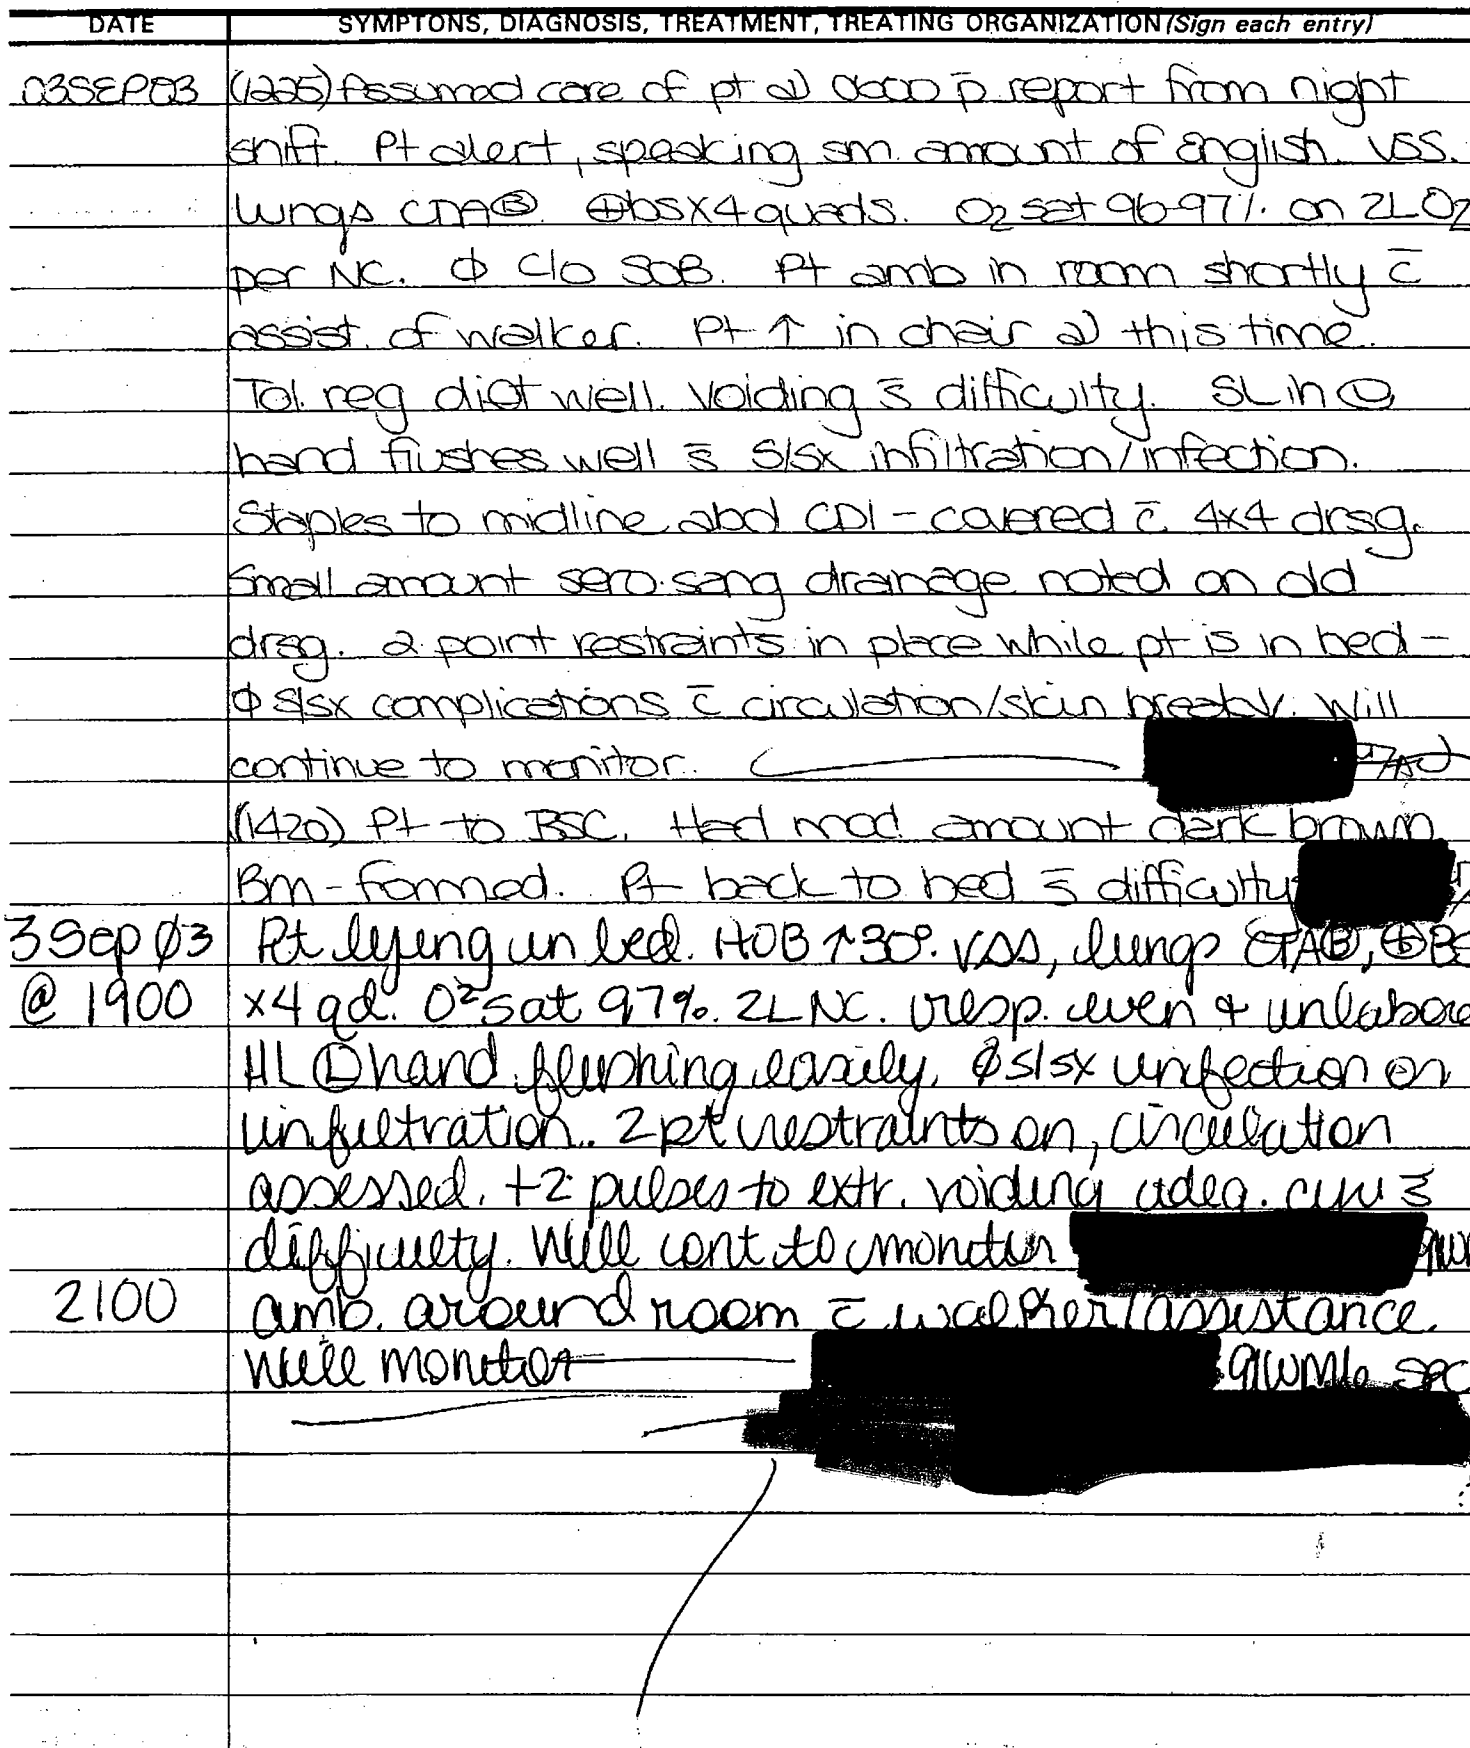 DATE SYMPTONS, DIAGNOSIS, TREATMENT, TREATING ORGANIZATION (Sign each entry)
03SEP03 (1225) Assumed care of pt @ 0600 p̄ report from night
shift. Pt alert, speaking sm. amount of English. VSS.
Lungs CTA Ⓑ. ⊕bs x 4 quads. O2 sat 96-97% on 2L O2
per NC. ϕ c/o SOB. Pt amb in room shortly c̄
assist. of walker. Pt ↑ in chair @ this time.
Tol. reg diet well. Voiding s̄ difficulty. SL in Ⓛ
hand flushes well s̄ s/sx infiltration/infection.
Staples to midline abd CDI - covered c̄ 4x4 drsg.
Small amount sero.sang drainage noted on old
drsg. 2 point restraints in place while pt is in bed -
ϕ s/sx complications c̄ circulation/skin Will
continue to monitor.
(1420) Pt to BSC. Had mod amount dark brown
Bm-formed. Pt back to bed s̄ difficulty
3 Sep Ø3 Pt lying in bed. HOB ↑30°. VSS, lungs CTAⒷ, ⊕BS
@ 1900 x4 qd. O² sat 97%. 2L NC. resp. even + unlabore
HL Ⓛ hand flushing easily, ϕ s/sx infection or
infiltration. 2pt restraints on, circulation
assessed. +2 pulses to extr. voiding adeq. cyu s̄
difficulty. Will cont to monitor
2100 amb. around room c̄ walker/assistance.
Will monitor 91WM6 SPC